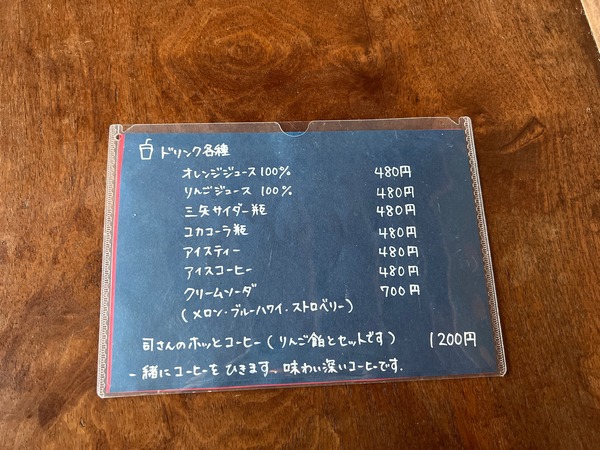 ドリンク各種
オレンジジュース100% 480円
りんごジュース 100% 480円
三矢サイダー瓶 480円
コカコーラ瓶 480円
アイスティー 480円
アイスコーヒー 480円
クリームソーダ 700円
(メロン・ブルーハワイ・ストロベリー)
司さんのホッとコーヒー(りんご飴とセットです) 1200円
一緒にコーヒーをひきます、味わい深いコーヒーです.